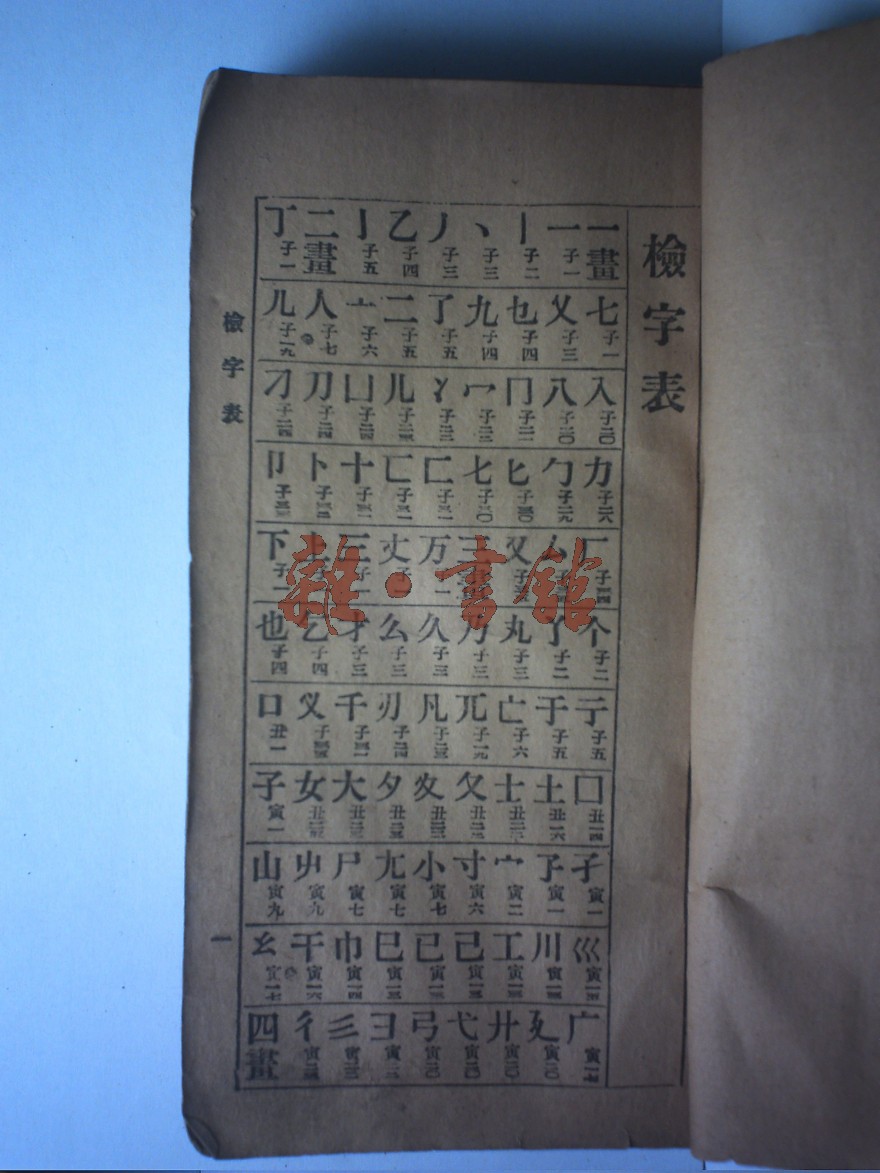 檢字表
一畫 一子一 丨子二 丶子三 丿子三 乙子四 亅子五 二畫 丁子一
七子一 乂子三 乜子四 九子四 了子五 二子五 亠子六 人子七 儿子一九
入子二〇 八子二〇 冂子二一 冖子二二 冫 儿 凵子二四 刀子二四 刁子二四
力子二六 勹子二九 匕子三〇 七子三〇 匚子三一 匸子三一 十子三一 卜 卩
厂子三四 厶 又 三畫 万 丈 三子一 上 下子一
个子二 丫子二 丸子三 乃子三 久子三 么子三 才子三 乞子四 也子四
亍子五 于子五 亡子六 兀子一九 凡 刃子二四 千子三一 义 口丑一
囗丑一四 土丑一六 士 夂 夊 夕 大 女 子寅一
孑寅一 孓寅一 宀寅二 寸寅六 小寅七 尢寅七 尸寅七 屮寅九 山寅九
巛 川 工 己 已 巳 巾寅一四 干寅一六 幺寅一七
广寅一七 廴寅二〇 廾寅二〇 弋寅二〇 弓寅二〇 彐 彡 彳 四畫
檢字表
一
雜·書館